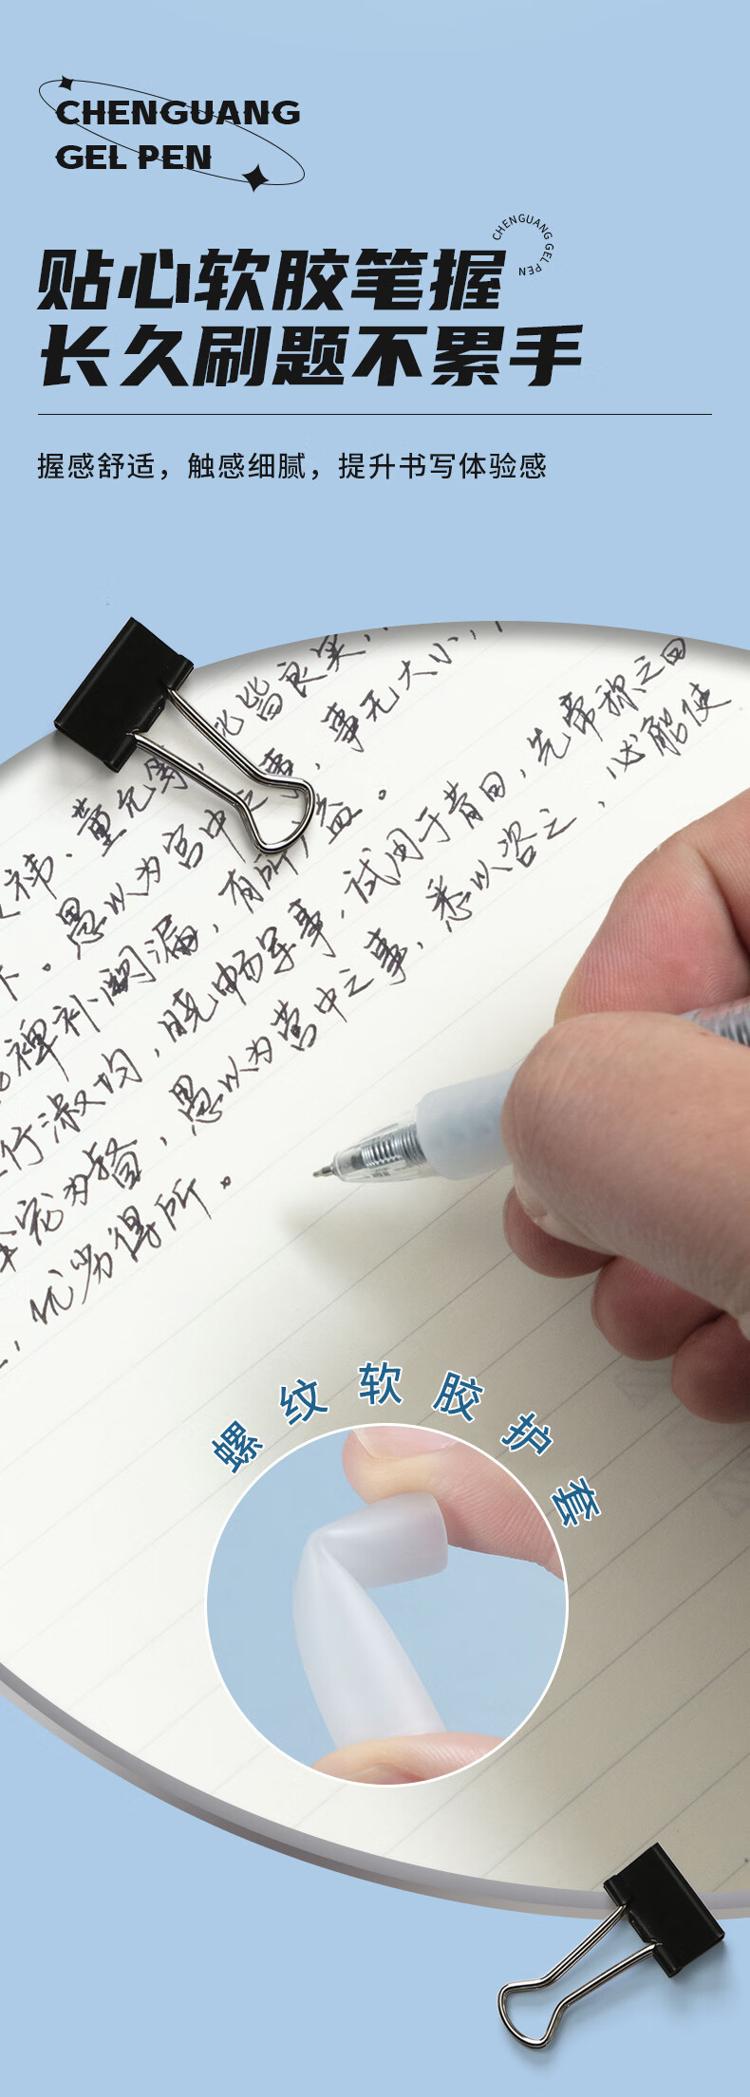 CHENGUANG
GEL PEN
CHENGUANG GEL PEN
贴心软胶笔握
长久刷题不累手
握感舒适，触感细腻，提升书写体验感
此皆良实，
祎、董允等，
事无大小，
下。愚以为宫中之事，
裨补阙漏，有所广益。
行淑均，晓畅军事，试用于昔日，先帝称之曰
举宠为督，愚以为营中之事，悉以咨之，必能使
，优劣得所。
螺纹软胶护套